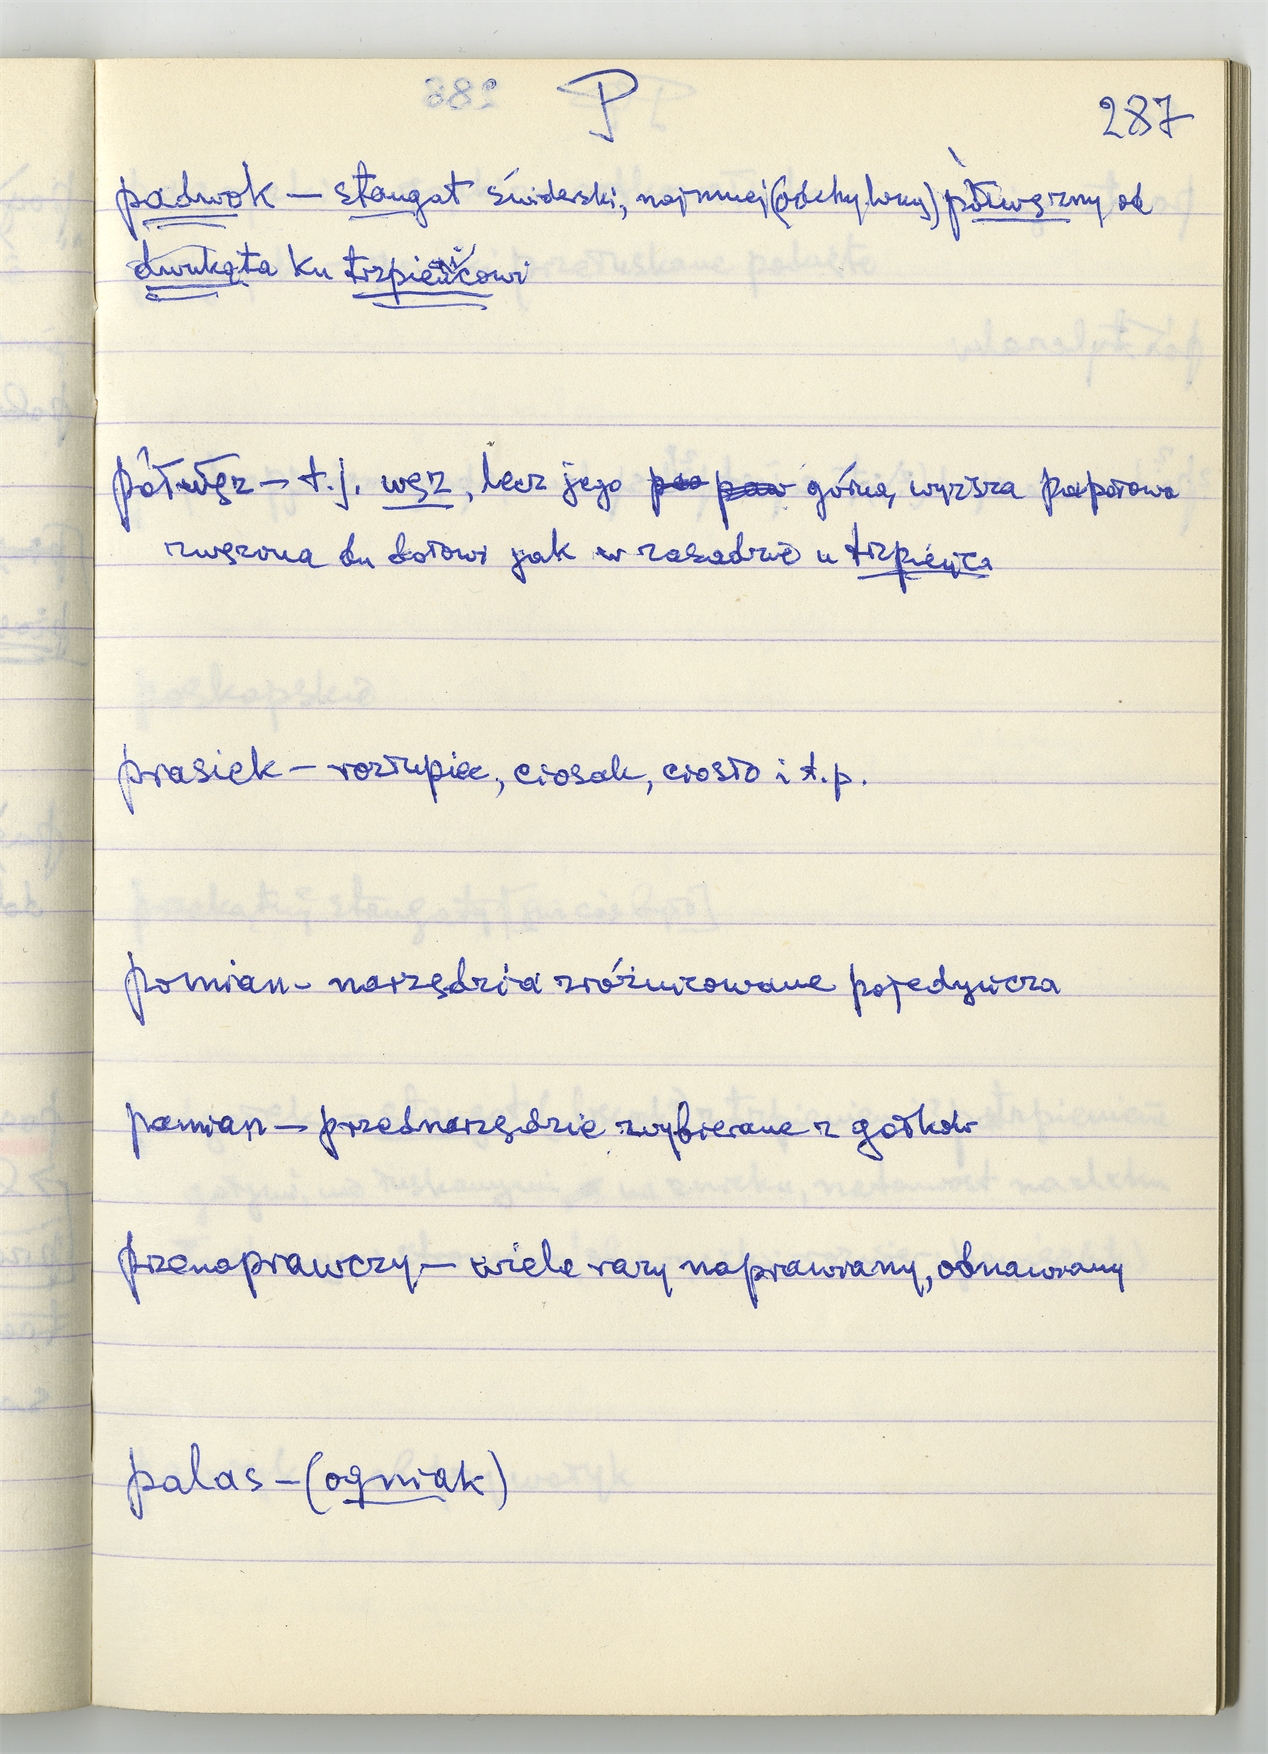 P
287
padwok — stougat świderski, najmniej (odchylony) półwęzny od
dwukąta ku trzpieńcowi
półwęz — t.j. węz, lecz jego górna, wyższa połowa
zwężona ku dołowi jak w zasadzie u trzpieńca
prasiek — rozłupiec, ciosak, ciosło i t.p.
pomian — narzędzia zróżnicowane pojedyncza
pamian — przednarzędzie wybierane z gołków
przenaprawczy — wiele razy naprawiany, odnawiany
palas — (ogniak)